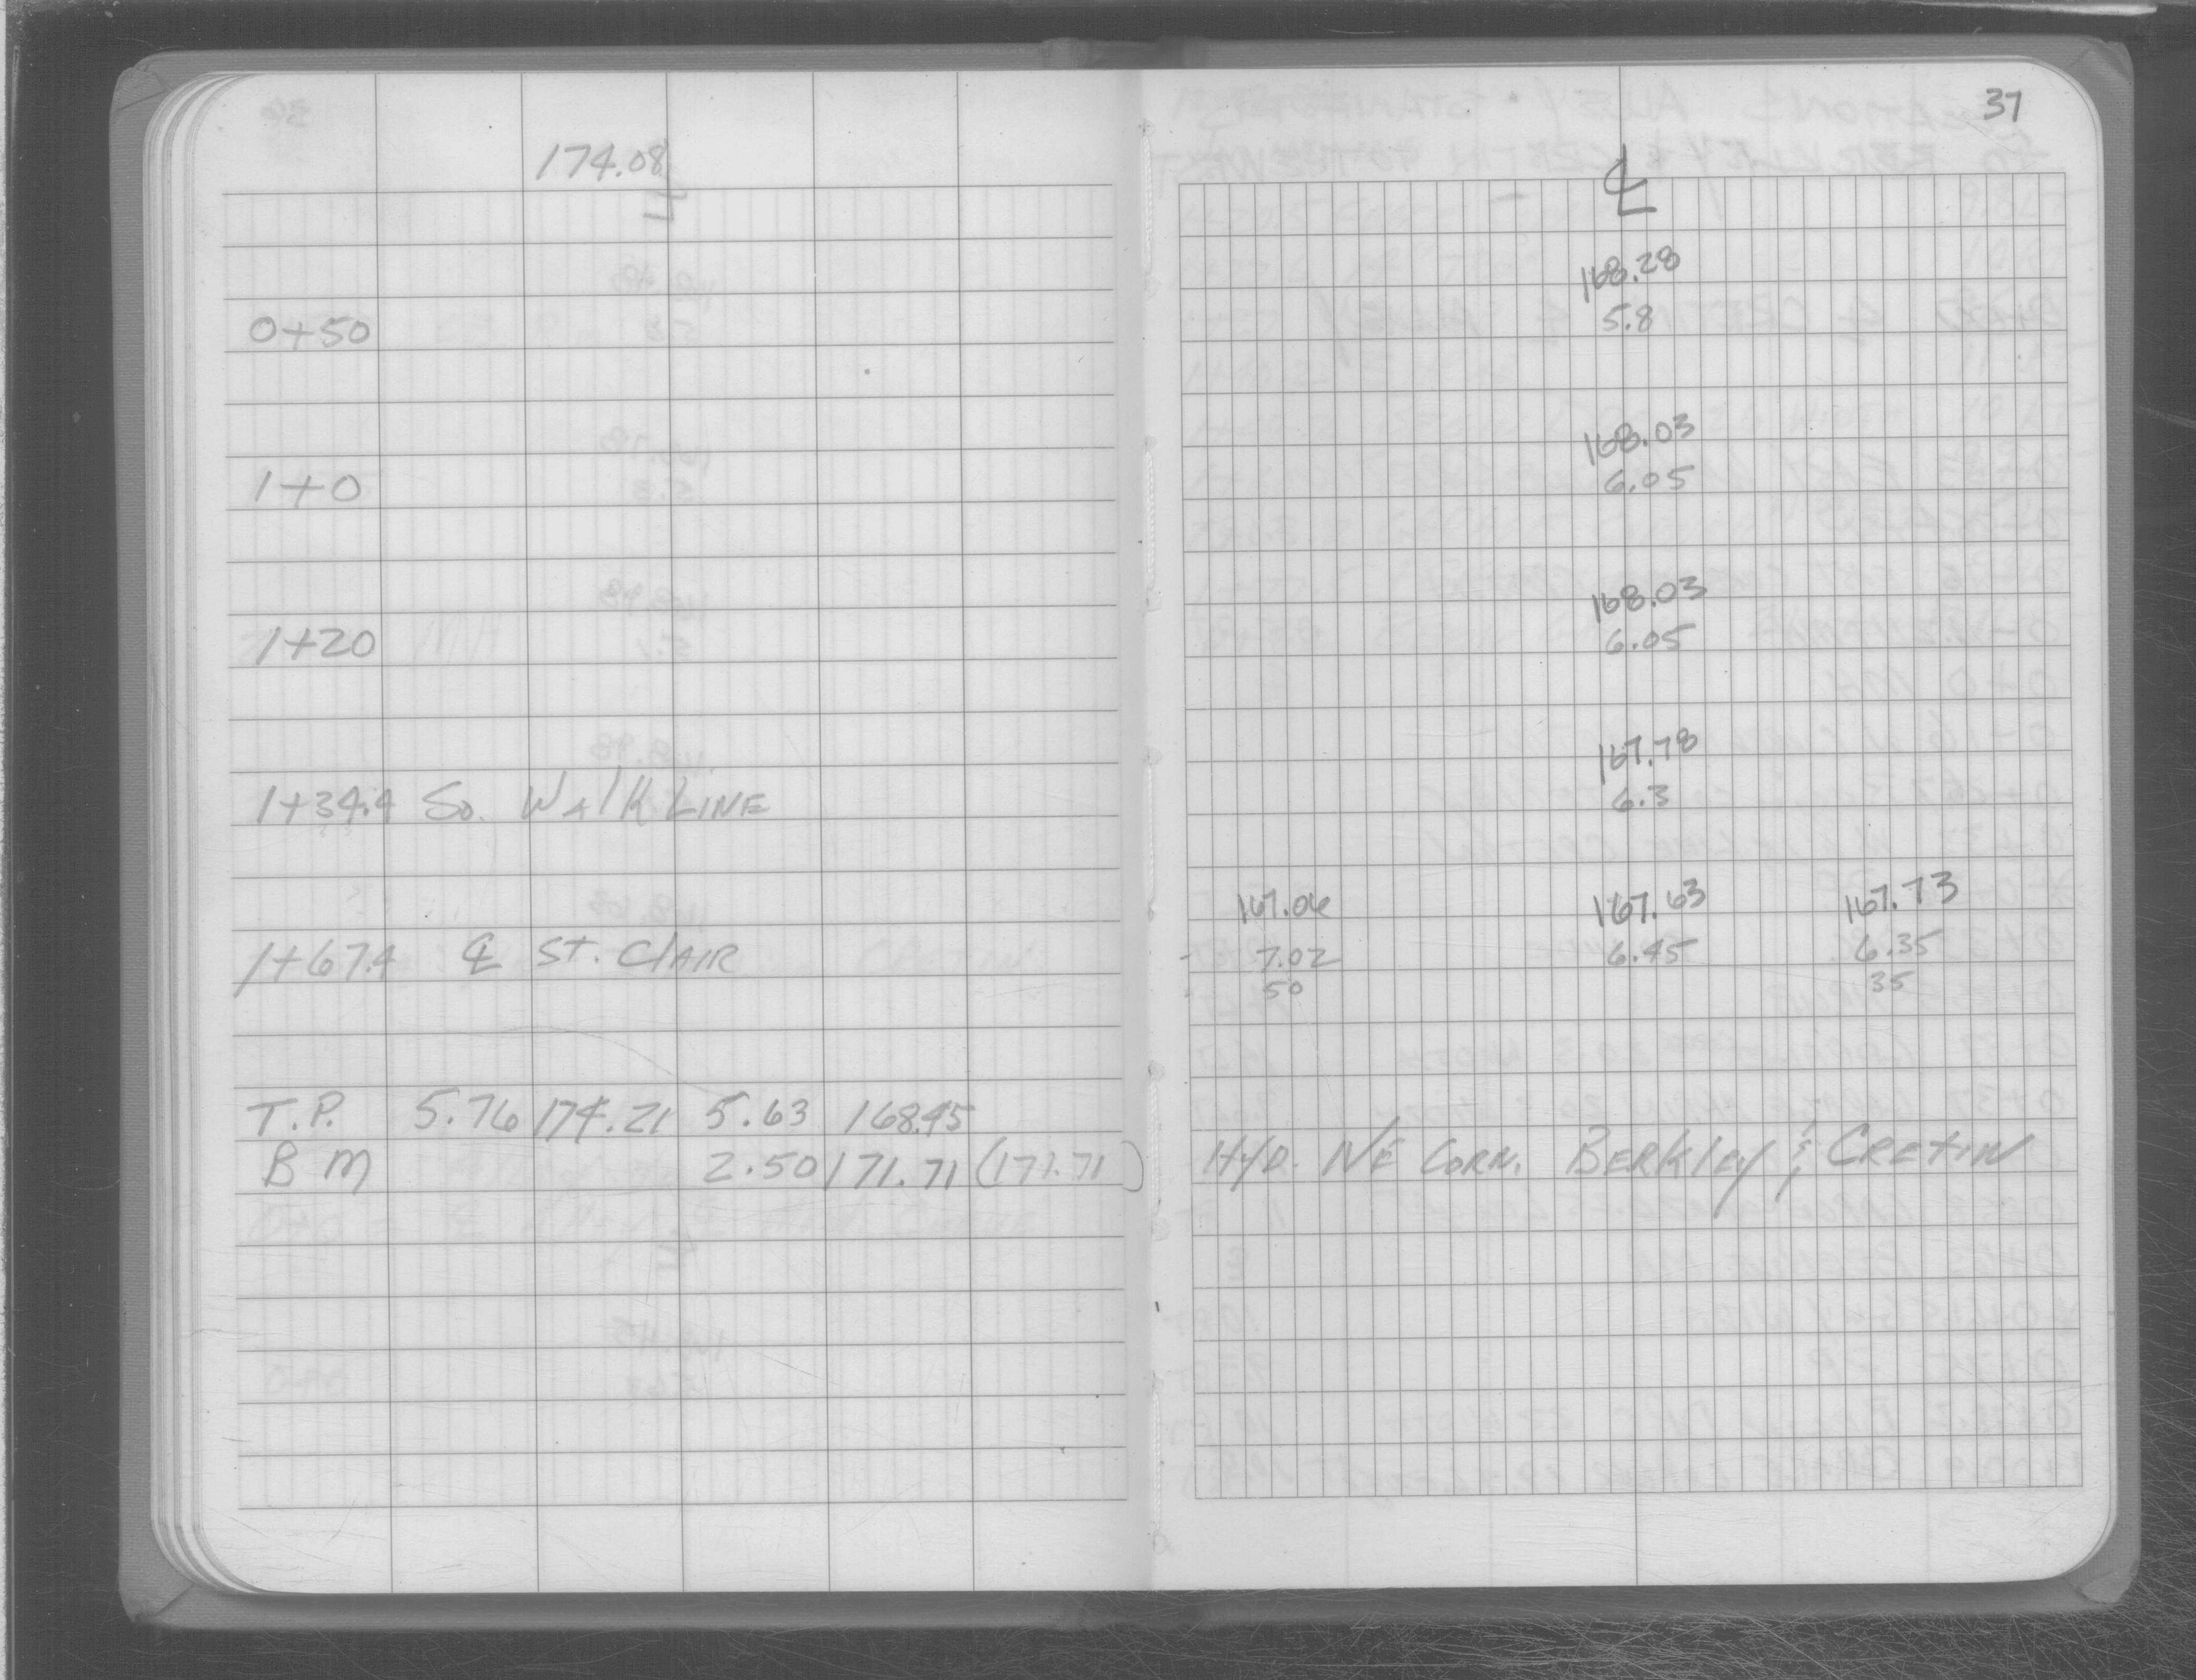 37
174.08
℄
168.28
0+50 5.8
168.03
1+0 6.05
168.03
1+20 6.05
167.78
1+34.4 So. Walk Line 6.3
167.06 167.63 167.73
1+67.4 ℄ St. Clair 7.02 6.45 6.35
50 35
T.P. 5.76 174.21 5.63 168.45
B M 2.50 171.71 (171.71) Hyd. NE Corn. Berkley & Cretin